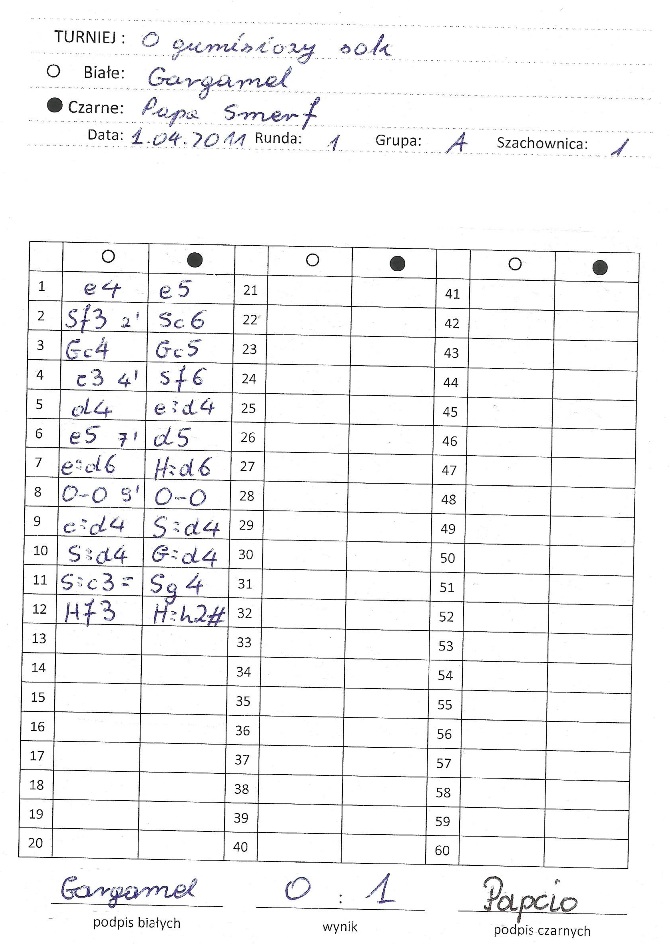 TURNIEJ: O gumisiozy sok
Białe: Gargamel
Czarne: Papa Smerf
Data: 1.04.2011 Runda: 1 Grupa: A Szachownica: 1
1 e4 e5 21 41
2 Sf3 2' Sc6 22 42
3 Gc4 Gc5 23 43
4 c3 4' Sf6 24 44
5 d4 e:d4 25 45
6 e5 7' d5 26 46
7 e:d6 H:d6 27 47
8 O-O 9' O-O 28 48
9 c:d4 S:d4 29 49
10 S:d4 G:d4 30 50
11 S:c3= Sg4 31 51
12 Hf3 H:h2# 32 52
13 33 53
14 34 54
15 35 55
16 36 56
17 37 57
18 38 58
19 39 59
20 40 60
Gargamel 0 : 1 Papcio
podpis białych wynik podpis czarnych